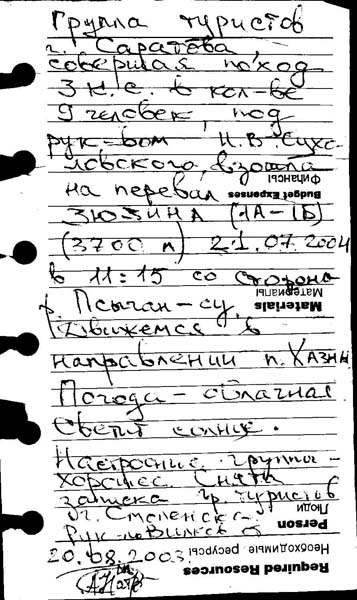 Группа туристов
г. Саратова,
совершая поход
3 к.с. в кол-ве
9 человек, под
рук-вом Н.В. Сухо-
ловского, взошла
Финансы
на перевал
Budget Expenses
ЗЮЗИНА (1А-1Б)
(3700 м) 21.07.2004
в 11:15 со стороны
Материалы
р. Псычан-су,
Materials
Движемся в
направлении п. Хазны
Погода - облачная
светит солнце.
Настроение группы -
хорошее. Снята
записка гр. туристов
Люди
г. Смоленска
Person
Рук-ль
Необходимые ресурсы
20.08.2003.
Required Resources